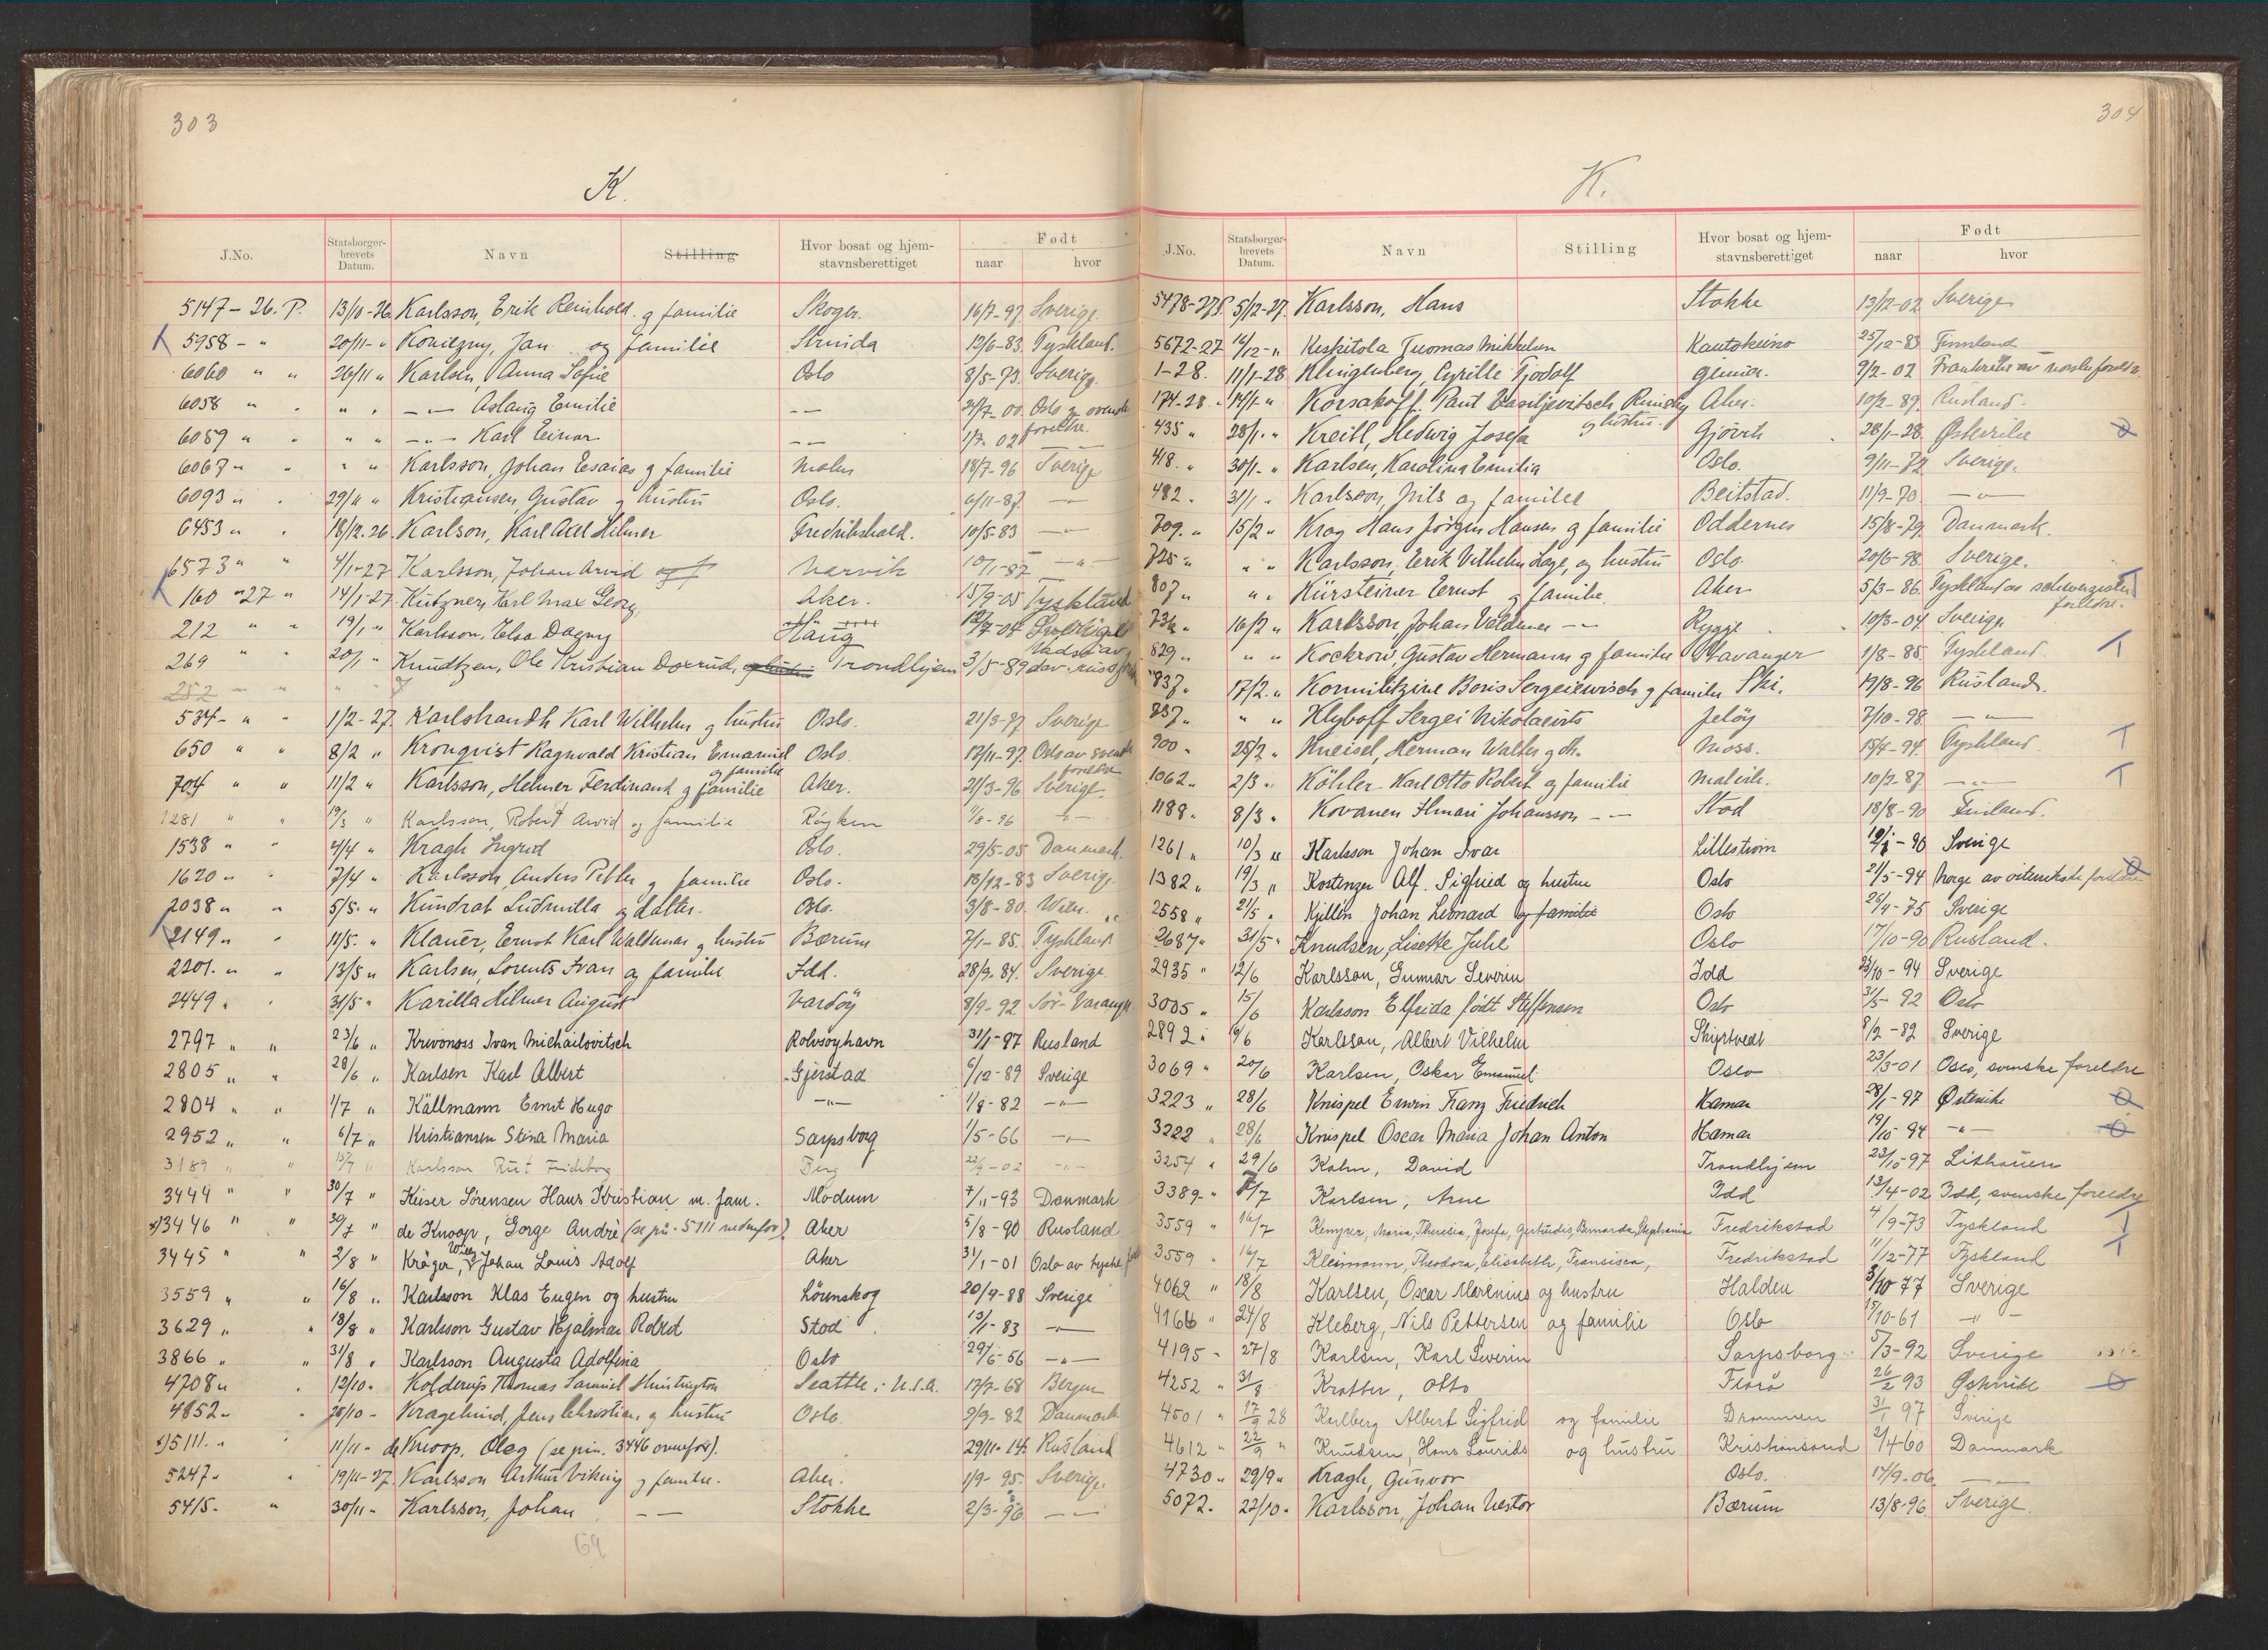 303
K.
J.No. Statsborger-brevets Datum. Navn Stilling Hvor bosat og hjem-stavnsberettiget Født naar hvor
5147 - 26. P. 13/10-26 Karlsson, Erik Reinhold. g familie Skoger. 16/7-97 Sverige.
5958 - " 20/11- " Koniegny, Jan og familie Strinda 12/6-83 Tyskland.
6060 " " 26/11 " Karlsen, Anna Sofie Oslo 8/5-73. Sverige.
6058 " " " " - " - Aslaug Emilie - - 00. Oslo av svenske foreldre.
6059 " " " " - " - Karl Einar - - 1/7. 02 - -
6067 " " " " Karlsson, Johan Esaias g familie Malm 18/7-96 Sverige
6093 " " 29/11 " Kristiansen, Gustav g hustru Oslo. 6/11-87. - -
6453 " " 18/12.26 Karlson, Karl Axel Hilmer Fredrikshald. 10/5-83 - " -
6573 " " 4/1-27 Karlsson, Johan Arvid og f Narvik 10/1-87 - " -
160 "27 " 14/1-27 Kutzner, Karl Max Georg, Aker. 15/9-05 Tyskland
212 " " 19/1 " Karlsson, Elsa Dagny Haug Sverige
269 " " 20/1 " Knudtzen, Ole Kristian Doxrud, Trondhjem 3/5-89 Vadsø av
252 - " "
534 - " " 1/2-27. Karlstrandh Karl Wilhelm g hustru Oslo. 21/3-77 Sverige
650 " " 8/2 " Kronqvist Ragnvald Kristian Emanuel g familie Oslo. 17/11-97. Oslo av svenske foreldre
704 " " 11/2 " Karlsson, Helmer Ferdinand g familie Aker. 21/3-96 Sverige.
1281 " " 19/3 " Karlsson, Robert Arvid og familie Røyken 11/8-96 - " -
1538 " " 4/4 " Kragh Ingrid Oslo. 29/5-05 Danmark.
1620 " " 7/4 " Karlsson, Anders Petter g familie Oslo. 13/12-83 Sverige.
2038 " " 5/5. " Kundrat Ludmilla og datter. Oslo. 3/8-80. Wien.
2149 " " 11/5. " Klauer, Ernst Karl Waldemar g hustru Bærum 7/1-85. Tyskland
2201. " " 13/5 " Karlsen, Lorents Ivan og familie Idd. 28/9.84. Sverige
2449 " " 31/5 " Karilla Hilmer August Vardøy 8/9-92 Sør-Varanger
2797 " " 23/6 " Krivonoss Ivan Michailovitsch Rolvsøyhavn 31/1-87 Rusland
2805 " " 28/6 " Karlsen Karl Albert Gjerstad 6/12-89 Sverige
2804 " " 1/7 " Källmann Ernst Hugo - " - 1/8-82 - " -
2952 " " 6/7 " Kristiansen Stina Maria Sarpsborg 1/5-66 - " -
3189 " " 15/7 " Karlsson Rut Frideborg Berg 22/9-02 - " -
3444 " " 30/7 " Keiser Sørensen Hans Kristian m. fam. Modum 7/11-93 Danmark
x)3446 " " 30/7 " de Knoop, Gorge Andrè (se pn. 5111 nedenfor). Aker 5/8-90 Rusland
3445 " " 2/8 " Kröger, Willy Johan Louis Adolf Aker 31/1-01 Oslo av tyske
3559 " " 16/8 " Karlsson Klas Eugen og hustru Lörenskog 20/4-88 Sverige
3629 " " 18/8 " Karlsson Gustav Hjalmar Robert Stod 13/1-83 - " -
3866 " " 31/8 " Karlsson Augusta Adolfina Oslo 29/6-56 - " -
4708 " " 12/10 " Kolderup Thomas Samuel Huntington Seattle i U.S.A. 17/7-68 Bergen
4852 " " 28/10 - Kragelund, Jens Christian, g hustru Oslo. 9/9-82 Danmark
x)5111. " " 11/11 " de Knoop, Oleg (se pn. 3446 ovenfor). 29/11-14. Rusland
5247 " " 19/11-27. Karlsson Arthur Viking g familie. Aker. 1/9-95. Sverige.
5415. " 30/11 - Karlsson, Johan - - Stokke 2/3-96 - -
69
304
K.
J.No. Statsborger-brevets Datum. Navn Stilling Hvor bosat og hjem-stavnsberettiget Født naar hvor
5478-27P. 5/12-27. Karlsson, Hans Stokke 13/12-02 Sverige
5672-27 16/12- " Keskitola Tuomas Mikkelsen Kautokeino 25/12-83 Finnland
1-28. 11/1-28 Klingenberg, Cyrille Tjodolf 9/2-02 Frankrike av norske foreldre
174-28. " 14/1 - " Korsakoff. Vasiljevitsch Rimsky g hustru. Aker. 10/2-89. Rusland.
435 " 28/1. " Kreitl, Hedwig Josefa Gjövik 28/1-28. Østerrike
418. " 30/1. " Karlsen, Karolina Emilia Oslo. 9/11-72 Sverige.
482. 31/1 " Karlsson, Nils og familie Beitstad. 11/9-70. - " -
709. " 15/2 " Krog Hans Jörgen Hansen g familie Oddernes 15/8-79. Danmark.
725 " " " Karlsson, Erik Vilhelm Lage, og hustru Oslo. 20/6-98. Sverige.
807 " " " Kürsteiner Ernst g familie. Aker 5/3-86. Tyskland av schweiziske foreldre.
734 " 16/2 " Karlsson, Johan Valdemar - - Rygge 10/3-04 Sverige
829 " " " Kockrow, Gustav Hermann g familie Stavanger 1/8-85. Tyskland.
837 " 17/2. " Kornilitzine Boris Sergeiewisch g familie Ski. 17/8-96 Rusland.
" " Klyboff Sergei Nikolaievits Jeløy 7/10-98. - " -
900 " 25/2 " Kneisel, Herman Walter g Moss. 15/4-94. Tyskland.
1062 " 2/3 " Köhler Karl Otto Robert og familie Malvik. 10/7-87 - " -
1188 " 8/3 " Kovanen Ilmari Johansson - - Stod 18/8-90 Finland.
1261 " 10/3 " Karlsson Johan Ivar Lillestrøm -90 Sverige
1382 " 19/3 " Kostenzer Alf. Sigfried og hustru Oslo 21/5-94 Norge av østerrikske foreldre
2558 " 21/5 " Kjellin Johan Leonard og familie Oslo 26/4-75 Sverige
2687 " 31/5 " Knudsen, Lisette Julie Oslo 17/10-90 Rusland.
2935 " 12/6 Karlsson, Gunnar Severin Idd 23/10-94 Sverige
3005 " 15/6 Karlsson Elfrida født Steffensen Oslo 31/5-92 Oslo
2892 " 9/6 Karlsson, Albert Vilhelm Skiptvedt 8/2-82 Sverige
3069 " 20/6 Karlsen, Oskar Emanuel Oslo 23/3-01 Oslo, svenske foreldre
3223 " 28/6 Knispel Erwin Franz Friedrich Hamar 28/1-97 Østerrike
3222 " 28/6 Knispel Oscar Maria Johan Anton Hamar 19/10 94 - " -
3254 " 29/6 Kahn, David Trondhjem 23/10-97 Lithauen
3389 " 7/7 Karlsen, Arne Idd 13/4-02 Idd, svenske foreldre
3559 " 16/7 Kemper, Maria, Theresia, Josefa, Gertrudis, Bernarda, Stephania Fredrikstad 4/9-73 Tyskland
3559 " 16/7 Kleimann, Theodora, Elisabeth, Fransisca, Fredrikstad 11/12-77 Tyskland
4062 " 18/8 Karlsen, Oscar Marenius og hustru Halden 3/10 77 Sverige
4166 " 24/8 Kleberg, Nils Pettersen og familie Oslo 15/10-61 - " -
4195 - 27/8 Karlsen, Karl Severin Sarpsborg 5/3-92 Sverige
4252 " 31/8 Kratter, Otto Florö 26/2 93 Østerrike
4501 " 17/9 28 Karlberg Albert Sigfrid og familie Drammen 31/1 97 Sverige
4612 " 22/9 " Knudsen, Hans Laurids og hustru Kristiansand 2/4-60 Danmark
4730 " 29/9 " Kragh, Gunvor Oslo. 17/9-06. - -
5072. 22/10 " Karlsson, Johan Nestor Bærum 13/8-96 Sverige.